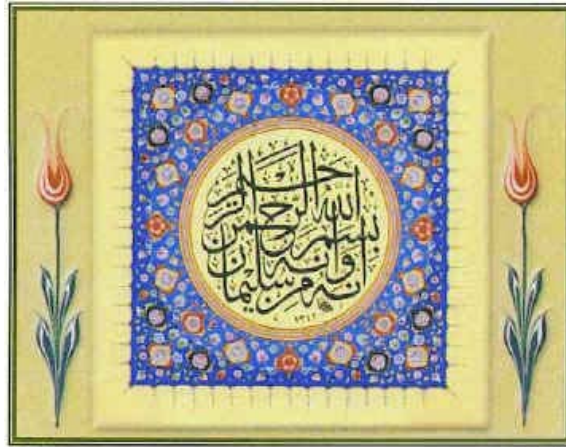 انه من سليمان
وانه
بسم الله الرحمن الرحيم